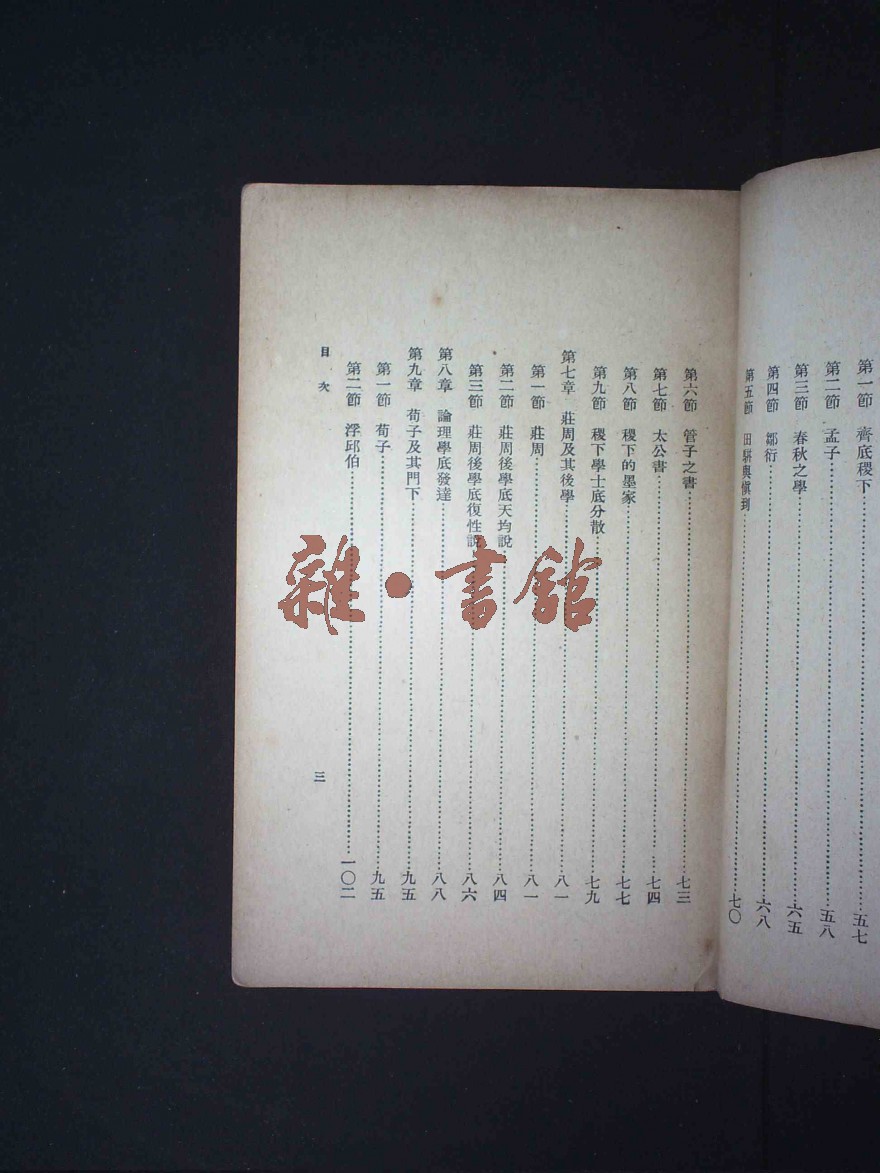 第一節　齊底稷下……五七
第二節　孟子……五八
第三節　春秋之學……六五
第四節　鄒衍……六八
第五節　田駢與慎到……七〇
第六節　管子之書……七三
第七節　太公書……七四
第八節　稷下的墨家……七七
第九節　稷下學士底分散……七九
第七章　莊周及其後學……八一
第一節　莊周……八一
第二節　莊周後學底天均說……八四
第三節　莊周後學底復性說……八六
第八章　論理學底發達……八八
第九章　荀子及其門下……九五
第一節　荀子……九五
第二節　浮邱伯……一〇二
目次
三
雜·書館